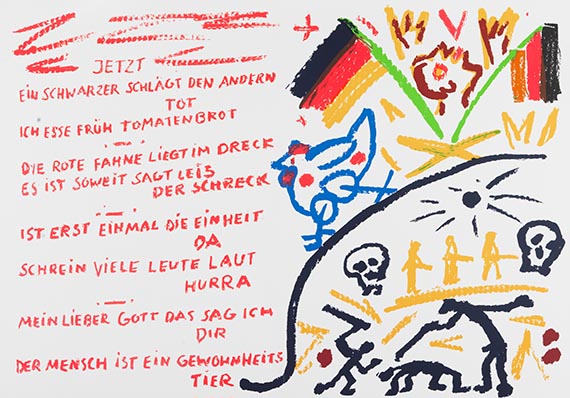 JETZT
EIN SCHWARZER SCHLÄGT DEN ANDERN
TOT
ICH ESSE FRÜH TOMATENBROT
DIE ROTE FAHNE LIEGT IM DRECK
ES IST SOWEIT SAGT LEIS
DER SCHRECK
IST ERST EINMAL DIE EINHEIT
DA
SCHREIN VIELE LEUTE LAUT
HURRA
MEIN LIEBER GOTT DAS SAG ICH
DIR
DER MENSCH IST EIN GEWOHNHEITS
TIER